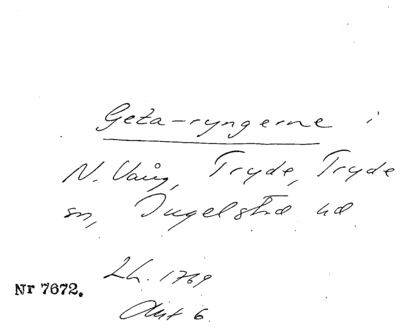 Geta-ryngerne i
N. Vång, Tryde, Tryde
sn, Ingelstad hd
Lh. 1769
Nr 7672.
Akt 6